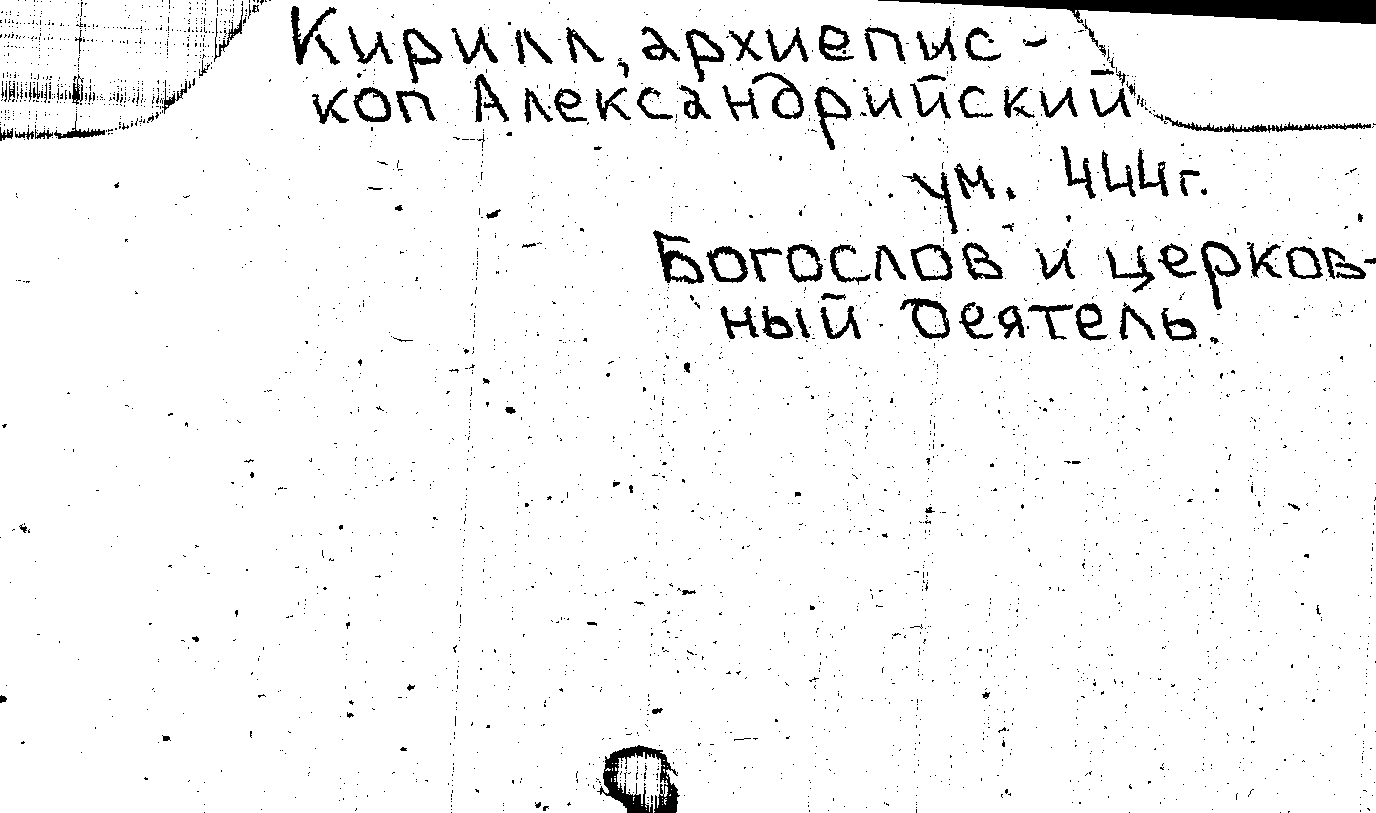 Кирилл, архиепис-
коп Александрийский
ум. 444г.
Богослов и церков-
ный деятель.